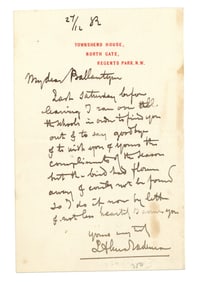 27/12 82
TOWNSHEND HOUSE,
NORTH GATE,
REGENTS PARK. N.W.
My dear Ballantyne
Last Saturday before
leaving I ran over all
the schools in order to find you
out & to say goodbye
& to wish you & yours the
compliments of the season
but the bird had flown
away & could not be found
so I do it now by letter
& not less heartily I assure you
Yours
L Alma Tadema